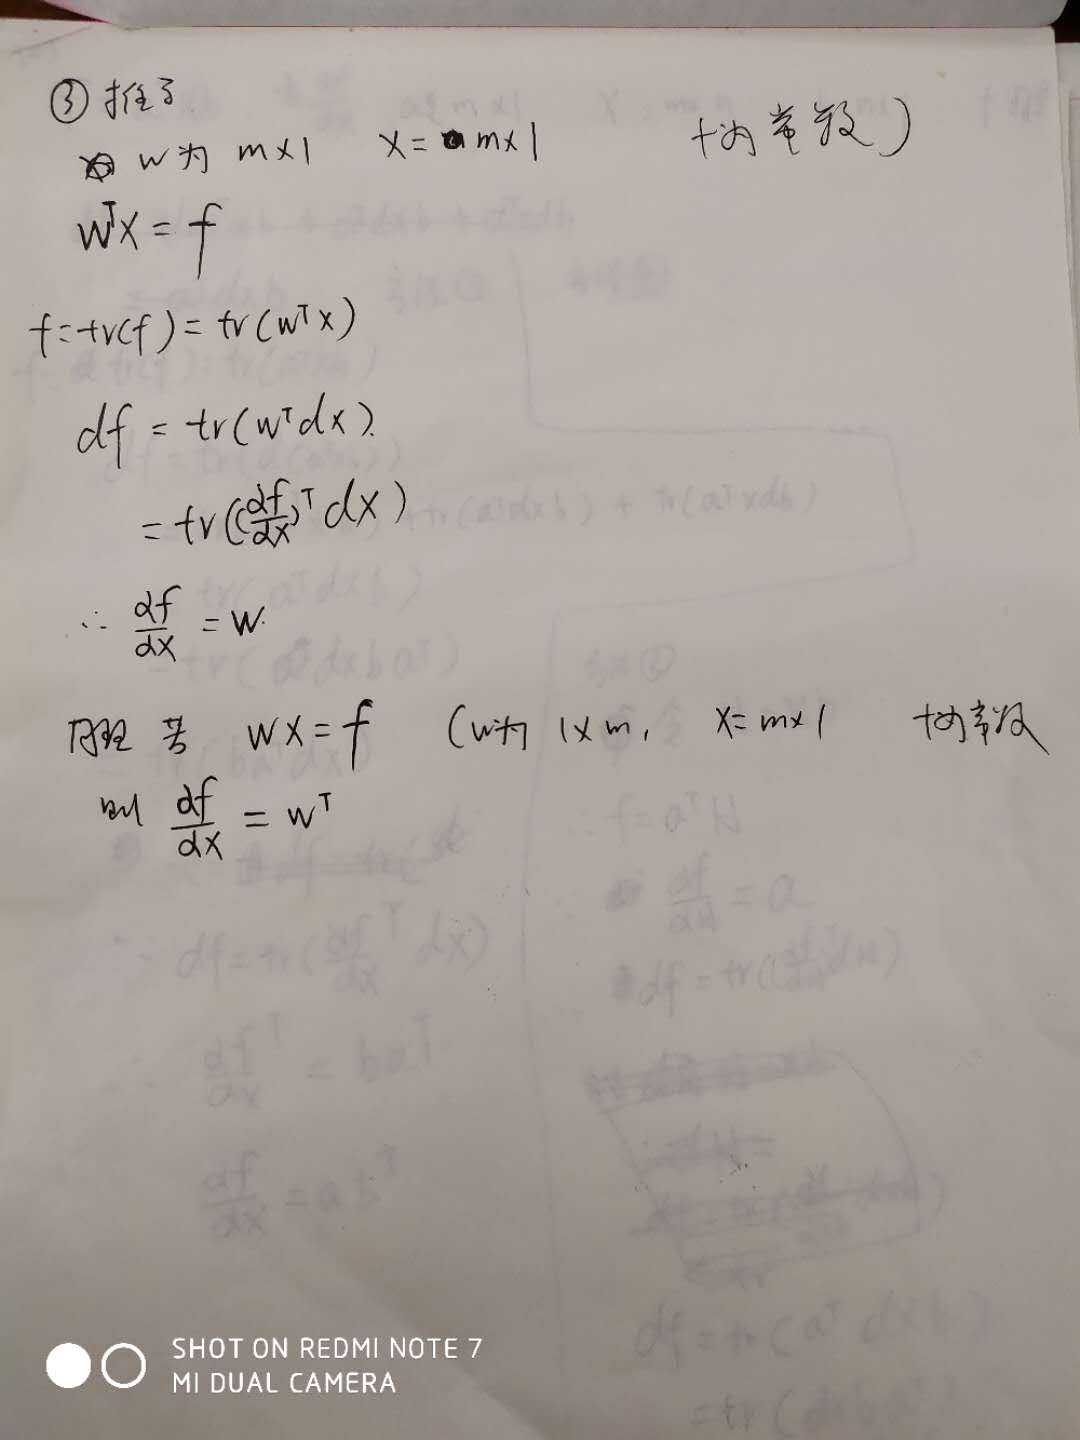 ③ 推导
w为 m×1 X= m×1 f为常数)
wᵀX = f
f = tr(f) = tr(wᵀx)
df = tr(wᵀdx).
= tr((df/dx)ᵀ dx)
∴ df/dx = w.
同理 若 wx = f (w为 1×m, x= m×1 f为常数
则 df/dx = wᵀ
SHOT ON REDMI NOTE 7
MI DUAL CAMERA